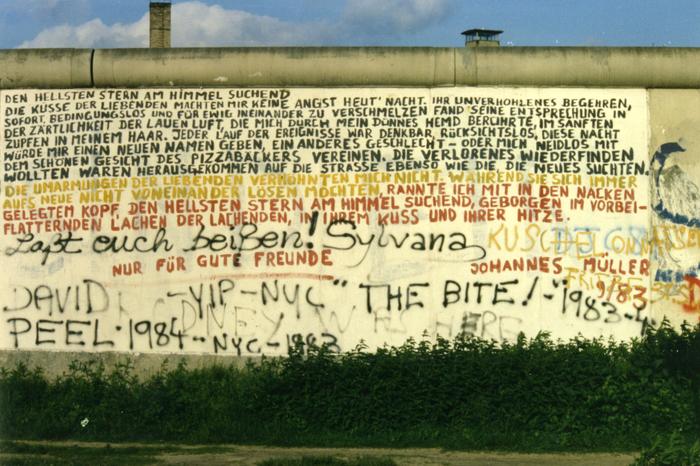 DEN HELLSTEN STERN AM HIMMEL SUCHEND
DIE KÜSSE DER LIEBENDEN MACHTEN MIR KEINE ANGST HEUT' NACHT. IHR UNVERHOHLENES BEGEHREN,
SOFORT, BEDINGUNGSLOS UND FÜR EWIG INEINANDER ZU VERSCHMELZEN FAND SEINE ENTSPRECHUNG IN
DER ZÄRTLICHKEIT DER LAUEN LUFT, DIE MICH DURCH MEIN DÜNNES HEMD BERÜHRTE, IM SANFTEN
ZUPFEN IN MEINEM HAAR. JEDER LAUF DER EREIGNISSE WAR DENKBAR, RÜCKSICHTSLOS, DIESE NACHT
WÜRDE MIR EINEN NEUEN NAMEN GEBEN, EIN ANDERES GESCHLECHT - ODER MICH NEIDLOS MIT
DEM SCHÖNEN GESICHT DES PIZZABÄCKERS VEREINEN. DIE VERLORENES WIEDERFINDEN
WOLLTEN WAREN HERAUSGEKOMMEN AUF DIE STRASSE EBENSO WIE DIE DIE NEUES SUCHTEN.
DIE UMARMUNGEN DER LIEBENDEN VERHÖHNTEN MICH NICHT, WÄHREND SIE SICH IMMER
AUFS NEUE NICHT VONEINANDER LÖSEN MOCHTEN, RANNTE ICH MIT IN DEN NACKEN
GELEGTEM KOPF, DEN HELLSTEN STERN AM HIMMEL SUCHEND, GEBORGEN IM VORBEI-
FLATTERNDEN LACHEN DER LACHENDEN, IN IHREM KUSS UND IHRER HITZE.
Laßt euch beißen! Sylvana
NUR FÜR GUTE FREUNDE
JOHANNES MÜLLER
9/83
DAVID -YIP-NYC" THE BITE!-"1983-4
PEEL·1984--NYC-1983